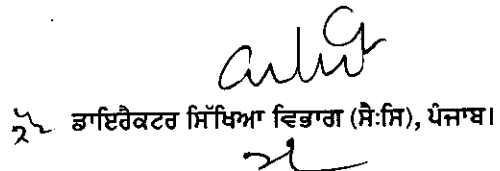 ਡਾਇਰੈਕਟਰ ਸਿੱਖਿਆ ਵਿਭਾਗ (ਸੈ:ਸਿ), ਪੰਜਾਬ।